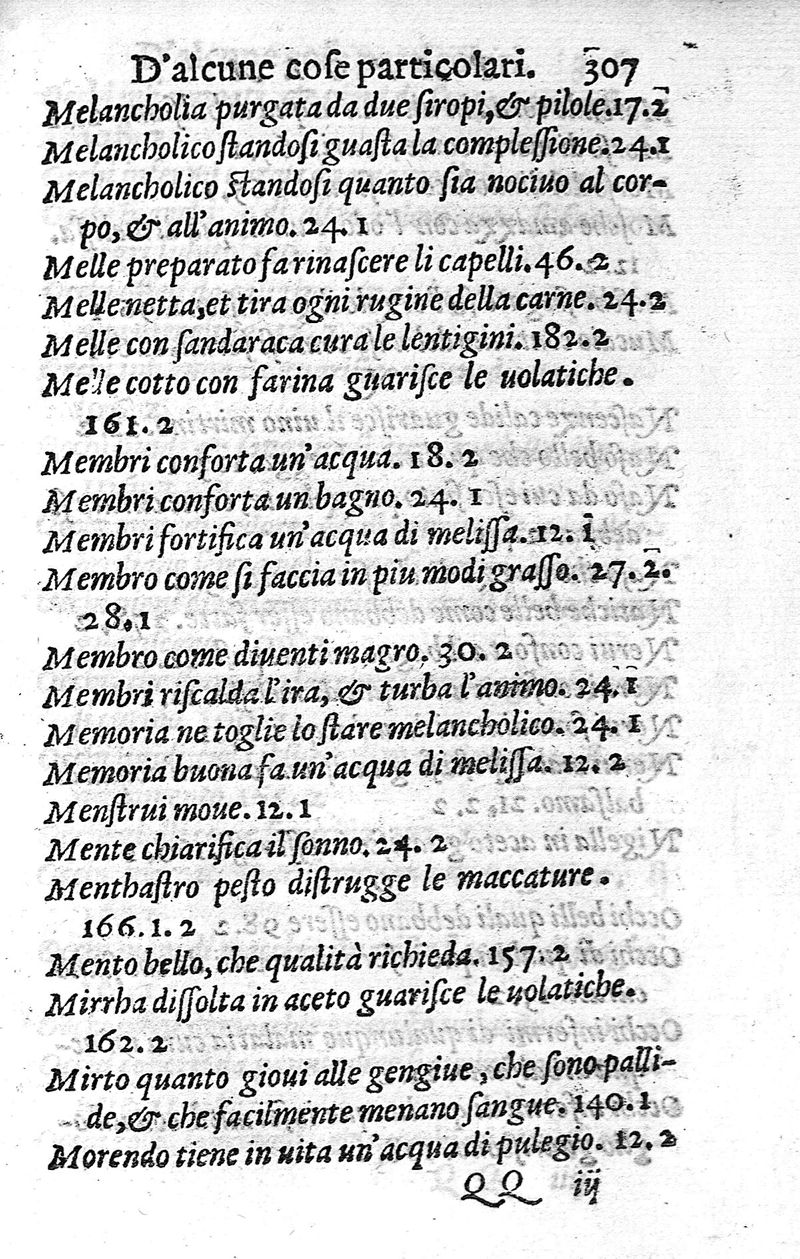 D'alcune coſe particolari. 307
Melancholia purgata da due ſiropi, & pilole. 17. 2
Melancholico ſtandoſi guaſta la compleſſione. 24. 1
Melancholico ſtandoſi quanto ſia nociuo al cor-
po, & all'animo. 24. 1
Melle preparato fa rinaſcere li capelli. 46. 2
Melle netta, et tira ogni rugine della carne. 24. 2
Melle con ſandaraca cura le lentigini. 182. 2
Melle cotto con farina guariſce le uolatiche.
161. 2
Membri conforta un'acqua. 18. 2
Membri conforta un bagno. 24. 1
Membri fortifica un'acqua di meliſſa. 12. 1
Membro come ſi faccia in piu modi graſſo. 27. 2.
28. 1
Membro come diuenti magro. 30. 2
Membri riſcalda l'ira, & turba l'animo. 24. 1
Memoria ne toglie lo ſtare melancholico. 24. 1
Memoria buona fa un'acqua di meliſſa. 12. 2
Menſtrui moue. 12. 1
Mente chiarifica il ſonno. 24. 2
Menthaſtro peſto diſtrugge le maccature.
166. 1. 2
Mento bello, che qualità richieda. 157. 2
Mirrha diſſolta in aceto guariſce le uolatiche.
162. 2
Mirto quanto gioui alle gengiue, che ſono palli-
de, & che facilmente menano ſangue. 140. 1
Morendo tiene in uita un'acqua di pulegio. 12. 2
QQ iij